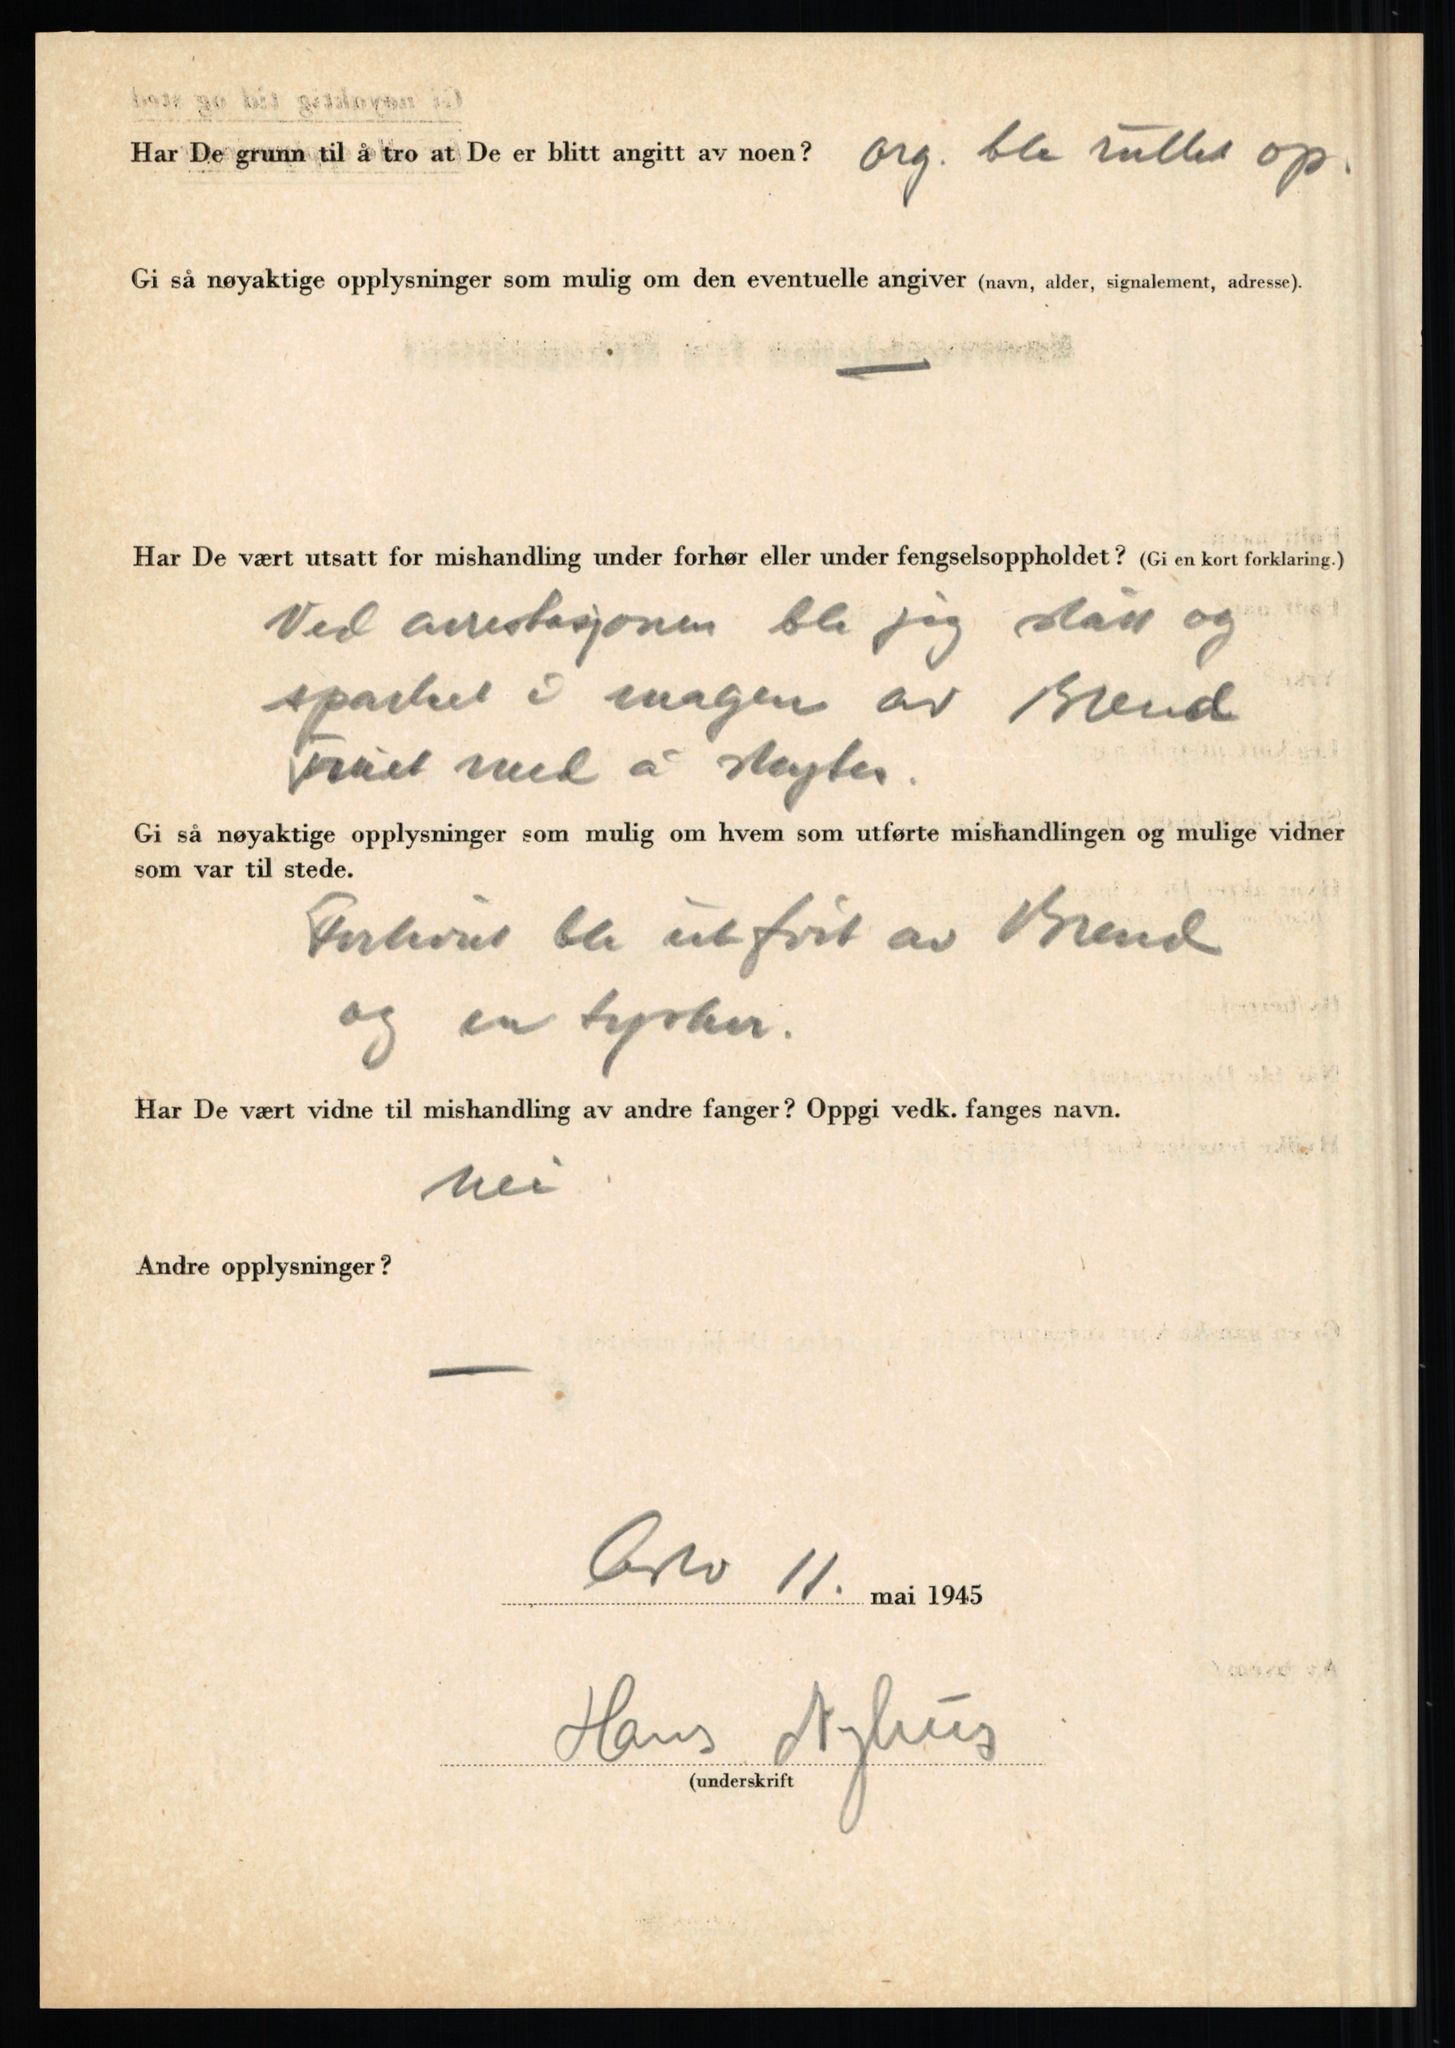 Har De grunn til å tro at De er blitt angitt av noen? org. ble rullet op.
Gi så nøyaktige opplysninger som mulig om den eventuelle angiver (navn, alder, signalement, adresse).
—
Har De vært utsatt for mishandling under forhør eller under fengselsoppholdet? (Gi en kort forklaring.)
Ved arrestasjonen ble jeg slått og
sparket i magen av Brend
Truet med å skytes.
Gi så nøyaktige opplysninger som mulig om hvem som utførte mishandlingen og mulige vidner
som var til stede.
Forhøret ble utført av Brend
og en tysker.
Har De vært vidne til mishandling av andre fanger? Oppgi vedk. fanges navn.
Nei
Andre opplysninger?
—
Oslo 11. mai 1945
Hans Nyhus
(underskrift